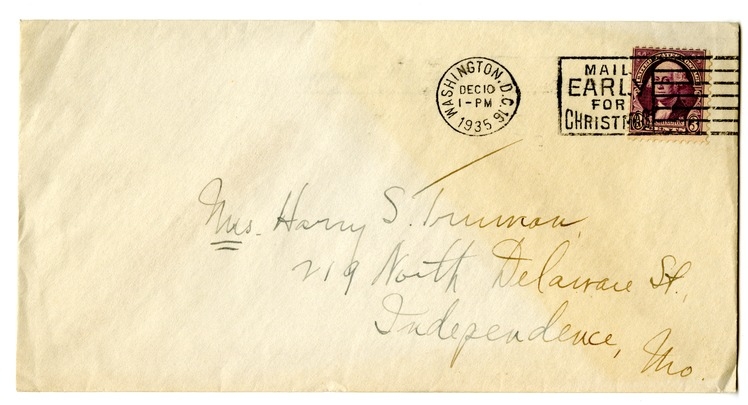 WASHINGTON, D.C. 16
DEC 10
1-PM
1935
MAIL
EARLY
FOR
CHRISTM
3 3
Mrs. Harry S. Truman,
219 North Delaware St.,
Independence, Mo.